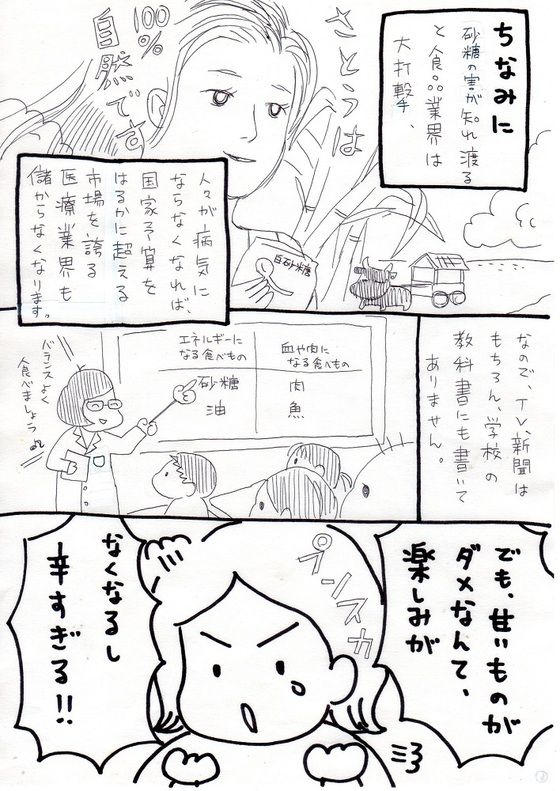 ちなみに
砂糖の害が知れ渡る
と食品業界は
大打撃、
さとうは
100%
自然です
白砂糖
人々が病気に
ならなくなれば、
国家予算を
はるかに超える
市場を誇る
医療業界も
儲からなくなります。
なので、TV、新聞は
もちろん、学校の
教科書にも書いて
ありません。
エネルギーに
なる食べもの
血や肉に
なる食べもの
砂糖
肉
油
魚
バランスよく
食べましょう
でも、甘いものが
ダメなんて、
楽しみが
プンスカ
なくなるし
辛すぎる!!